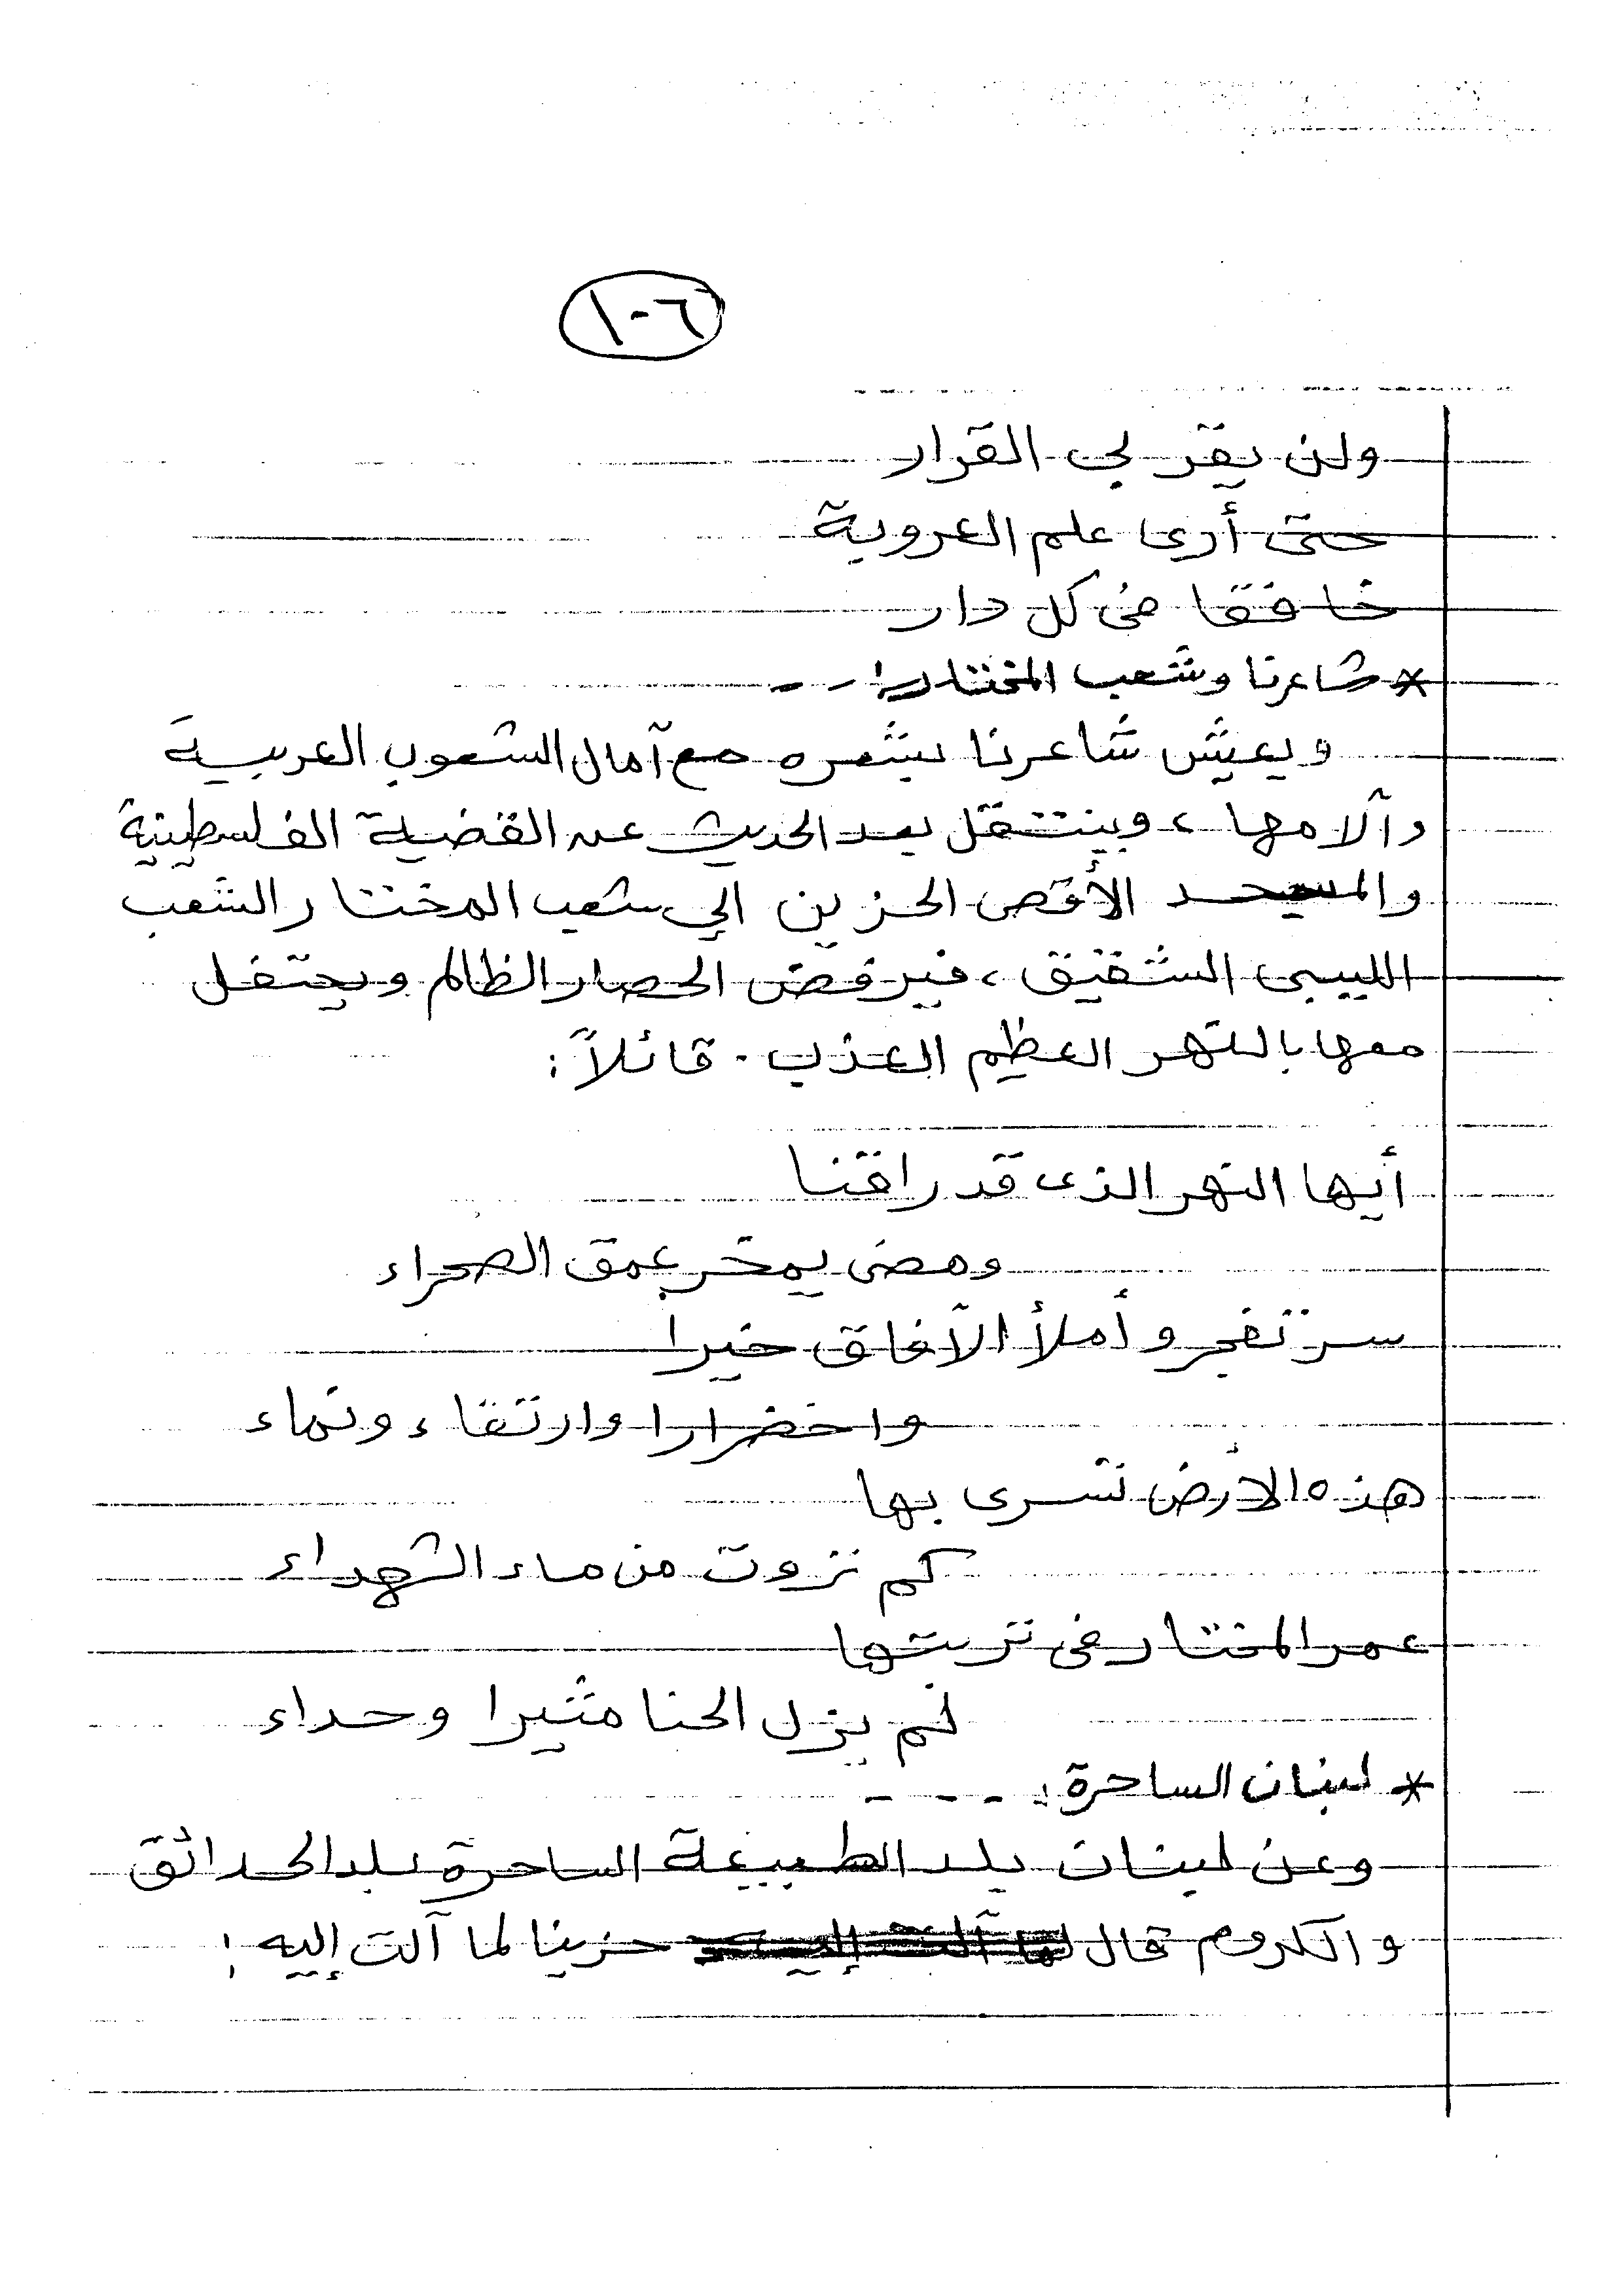 ١٠٦
ولن يقر لي القرار
حتى أرى علم العروبة
خافقا في كل دار
* شاعرنا وشعب المختار: - -
ويعيش شاعرنا بشعره مع آمال الشعوب العربية
وآلامها، وينتقل بعد الحديث عن القضية الفلسطينية
والمسجد الأقصى الحزين الي شعب المختار الشعب
الليبى الشقيق، فيرفض الحصار الظالم ويحتفل
معها بالنهر العظيم العذب. قائلاً:
أيها النهر الذى قد راقنا
ومضى يمخر عمق الصحراء
سر تفجر وأملأ الآفاق خيرا
واخضرارا وارتقاء ونماء
هذه الأرض نسرى بها
كم تروت من ماء الشهداء
عمر المختار فى تربتها
لم يزل لحنا مثيرا وحداء
* لبنان الساحرة: - - - -
وعن لبنان بلد الطبيعة الساحرة بلد الحدائق
والكروم قال حزينا لما آلت إليه: